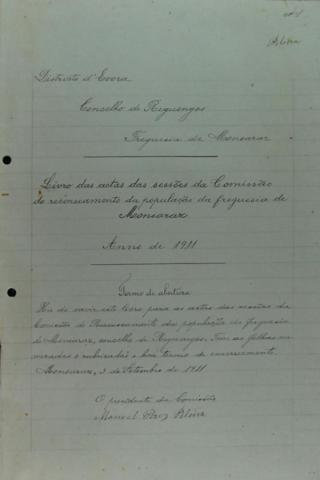 Districto d'Evora
Concelho de Reguengos
Freguesia de Monsaraz
Livro das actas das sessões da Comissão
de recenseamento da população da freguesia de
Monsaraz
Anno de 1911
Termo de abertura
Ha de servir este livro para as actas das sessões da
Comissão de Recenseamento da população da freguesia
de Monsaraz, concelho de Reguengos. Tem as folhas nu
meradas e rubricadas e leva termo de encerramento.
Monsaraz, 3 de Setembro de 1911
O presidente da Comissão
Manoel